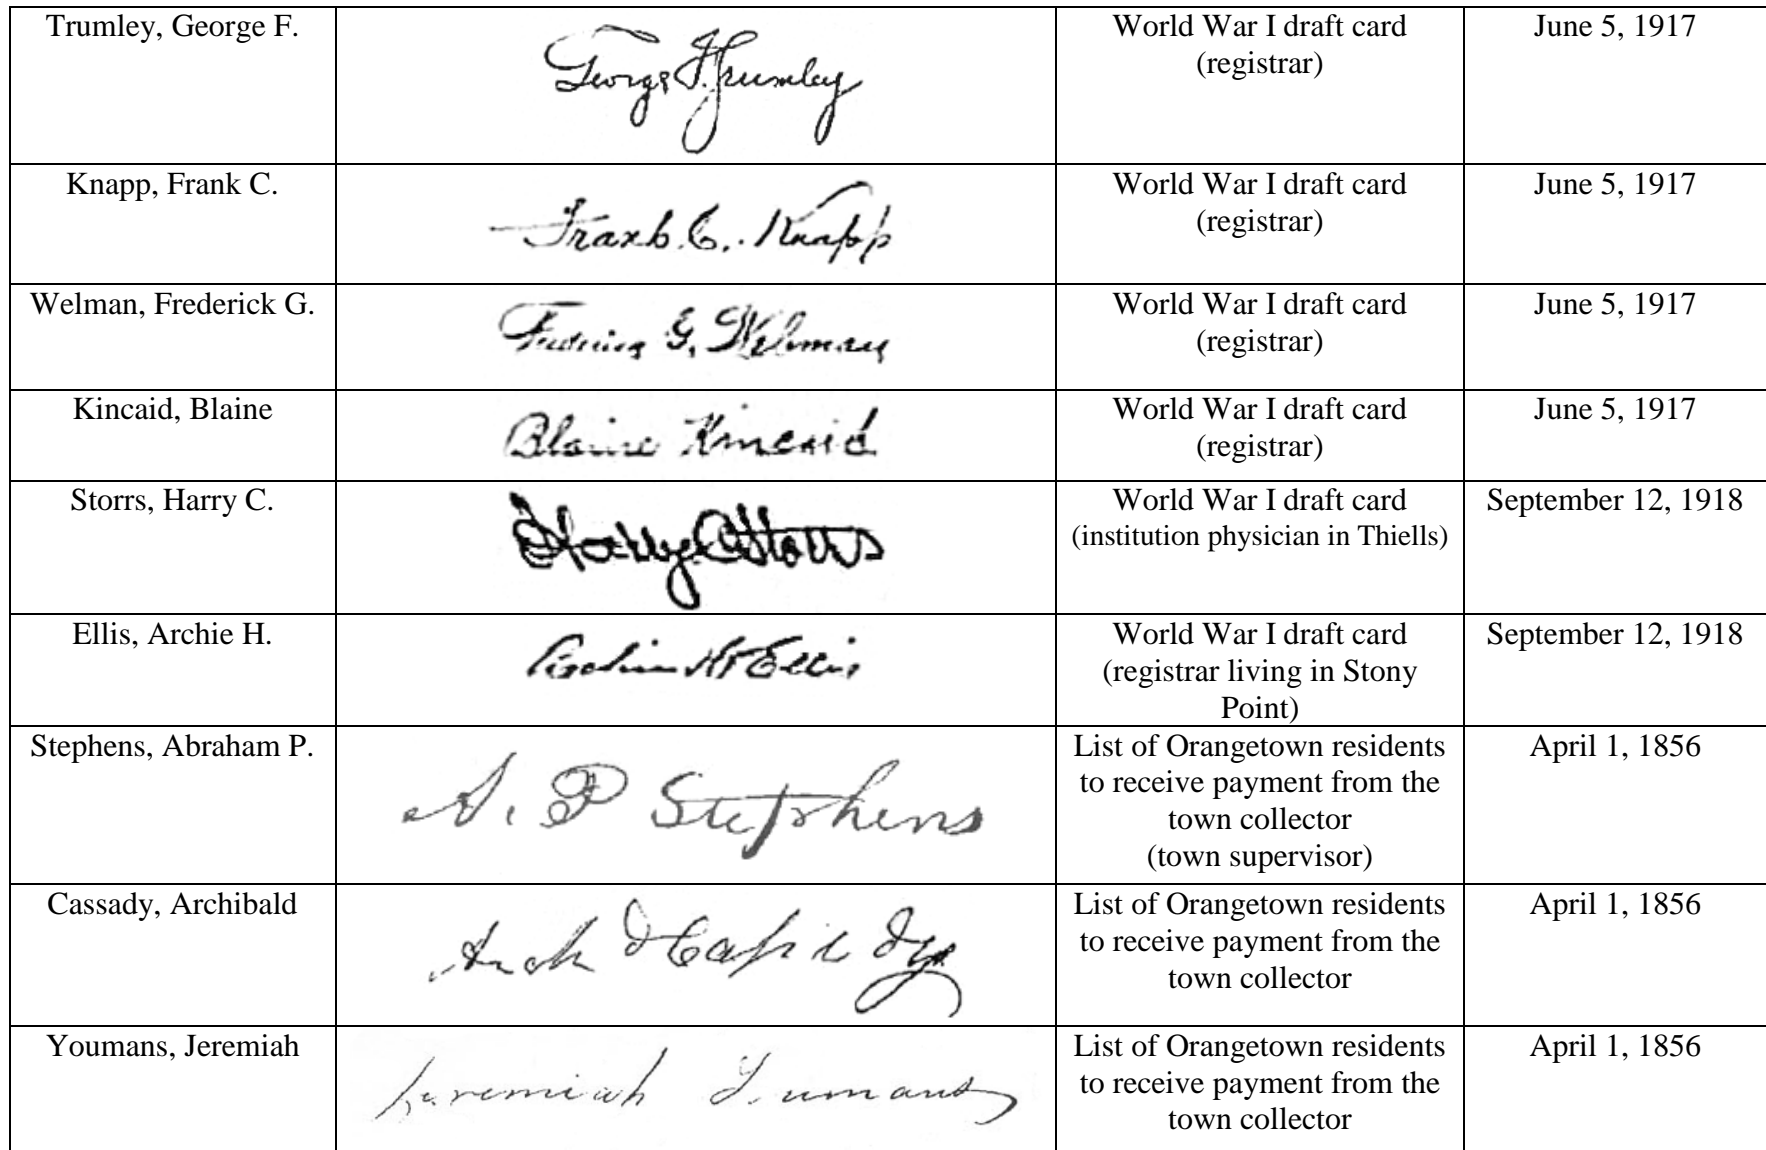 Trumley, George F.
George F. Trumley
World War I draft card
(registrar)
June 5, 1917
Knapp, Frank C.
Frank C. Knapp
World War I draft card
(registrar)
June 5, 1917
Welman, Frederick G.
Frederick G. Welman
World War I draft card
(registrar)
June 5, 1917
Kincaid, Blaine
Blaine Kincaid
World War I draft card
(registrar)
June 5, 1917
Storrs, Harry C.
Harry C Storrs
World War I draft card
(institution physician in Thiells)
September 12, 1918
Ellis, Archie H.
Archie H Ellis
World War I draft card
(registrar living in Stony
Point)
September 12, 1918
Stephens, Abraham P.
A. P Stephens
List of Orangetown residents
to receive payment from the
town collector
(town supervisor)
April 1, 1856
Cassady, Archibald
List of Orangetown residents
to receive payment from the
town collector
April 1, 1856
Youmans, Jeremiah
Jeremiah Yumans
List of Orangetown residents
to receive payment from the
town collector
April 1, 1856